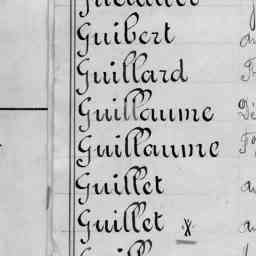 Guibert
Guillard
Guillaume
Guillaume
Guillet
Guillet x